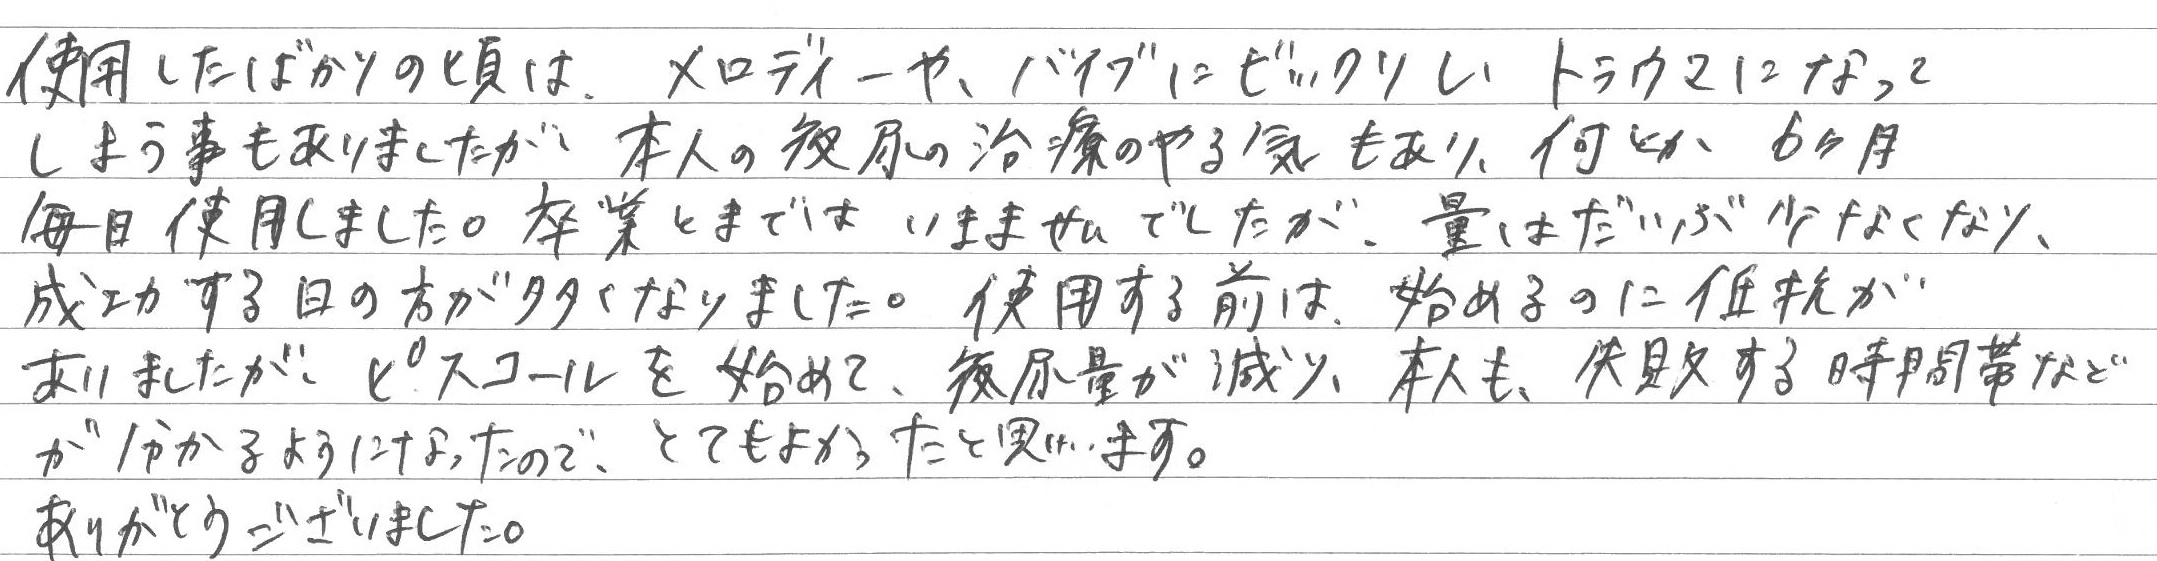 使用したばかりの頃は、メロディーや、バイブにビックリし、トラウマになって
しまう事もありましたが、本人の夜尿の治療のやる気もあり、何とか、6ヶ月
毎日使用しました。卒業とまではいきませんでしたが、量はだいぶ少なくなり、
成功する日の方が多くなりました。使用する前は、始めるのに抵抗が
ありましたが、ピスコールを始めて、夜尿量が減り、本人も、失敗する時間帯など
が分かるようになったので、とてもよかったと思います。
ありがとうございました。